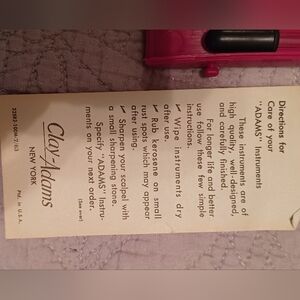 Directions for
Care of your
"ADAMS" Instruments
These instruments are of
high quality, well-designed,
and carefully finished.
For longer life and better
use follow these few simple
instructions.
✔ Wipe instruments dry
after use.
✔ Rub kerosene on small
rust spots which may appear
after using.
✔ Sharpen your scalpel with
a small sharpening stone.
Specify "ADAMS" Instru-
ments on your next order.
(See over)
Clay-Adams
NEW YORK
Ptd. in U.S.A.